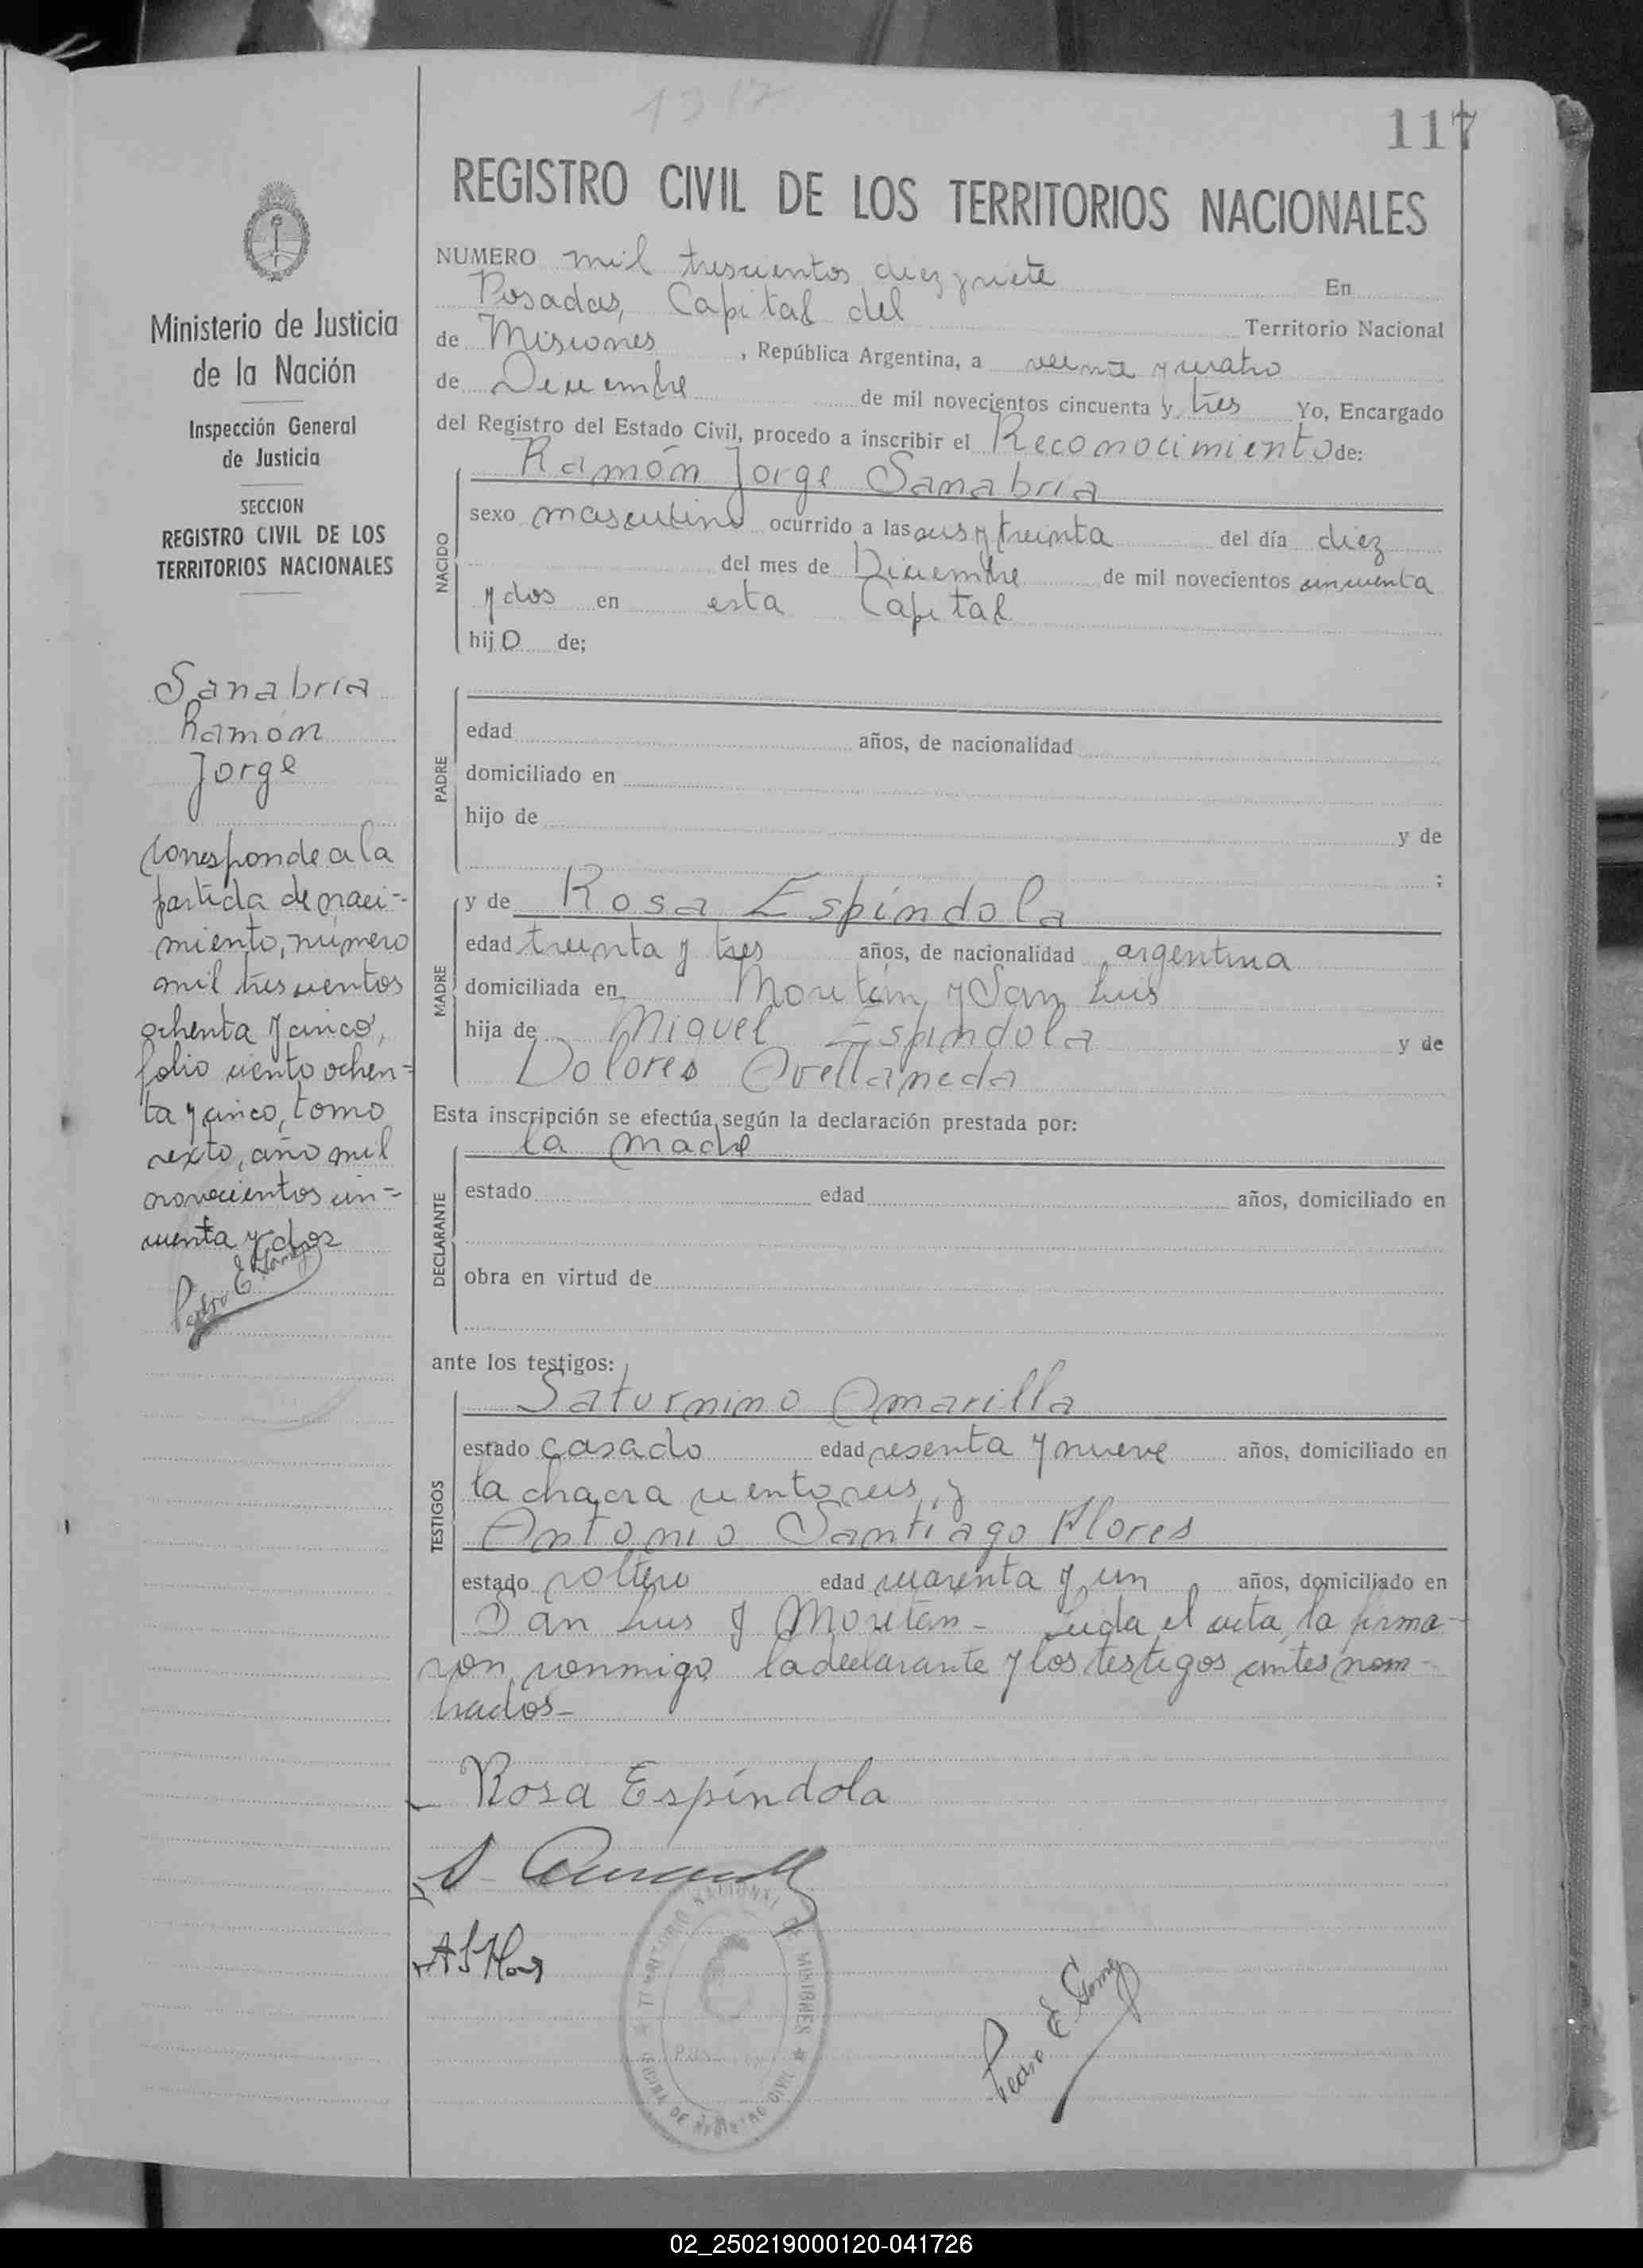 1317
117
REGISTRO CIVIL DE LOS TERRITORIOS NACIONALES
NUMERO mil trescientos diez y siete En
Posadas, Capital del Territorio Nacional
de Misiones , República Argentina, a veinte y cuatro
de Diciembre de mil novecientos cincuenta y tres Yo, Encargado
del Registro del Estado Civil, procedo a inscribir el Reconocimiento de:
Ramón Jorge Sanabria
NACIDO
sexo masculino ocurrido a las seis y treinta del día diez
del mes de Diciembre de mil novecientos cincuenta
y dos en esta Capital
hijo de;
PADRE
edad años, de nacionalidad
domiciliado en
hijo de y de
;
y de Rosa Espíndola
MADRE
edad treinta y tres años, de nacionalidad argentina
domiciliada en Moritán y San Luis
hija de Miguel Espíndola y de
Dolores Avellaneda
Esta inscripción se efectúa según la declaración prestada por:
la madre
DECLARANTE
estado edad años, domiciliado en
obra en virtud de
ante los testigos:
Saturnino Amarilla
TESTIGOS
estado casado edad sesenta y nueve años, domiciliado en
la chacra ciento seis, y
Antonio Santiago Flores
estado soltero edad cuarenta y un años, domiciliado en
San Luis y Moritán - Leida el acta, la firma-
ron conmigo la declarante y los testigos antes nom-
brados-
Rosa Espíndola
A S Flores
Pedro E. Gomez
TERRITORIO NACIONAL DE MISIONES
OFICINA DE REGISTRO CIVIL
Ministerio de Justicia
de la Nación
Inspección General
de Justicia
SECCION
REGISTRO CIVIL DE LOS
TERRITORIOS NACIONALES
Sanabria
Ramón
Jorge
Corresponde a la
partida de naci-
miento, número
mil trescientos
ochenta y cinco,
folio ciento ochen-
ta y cinco, tomo
sexto, año mil
novecientos cin-
cuenta y dos
Pedro E. Gomez
02_250219000120-041726